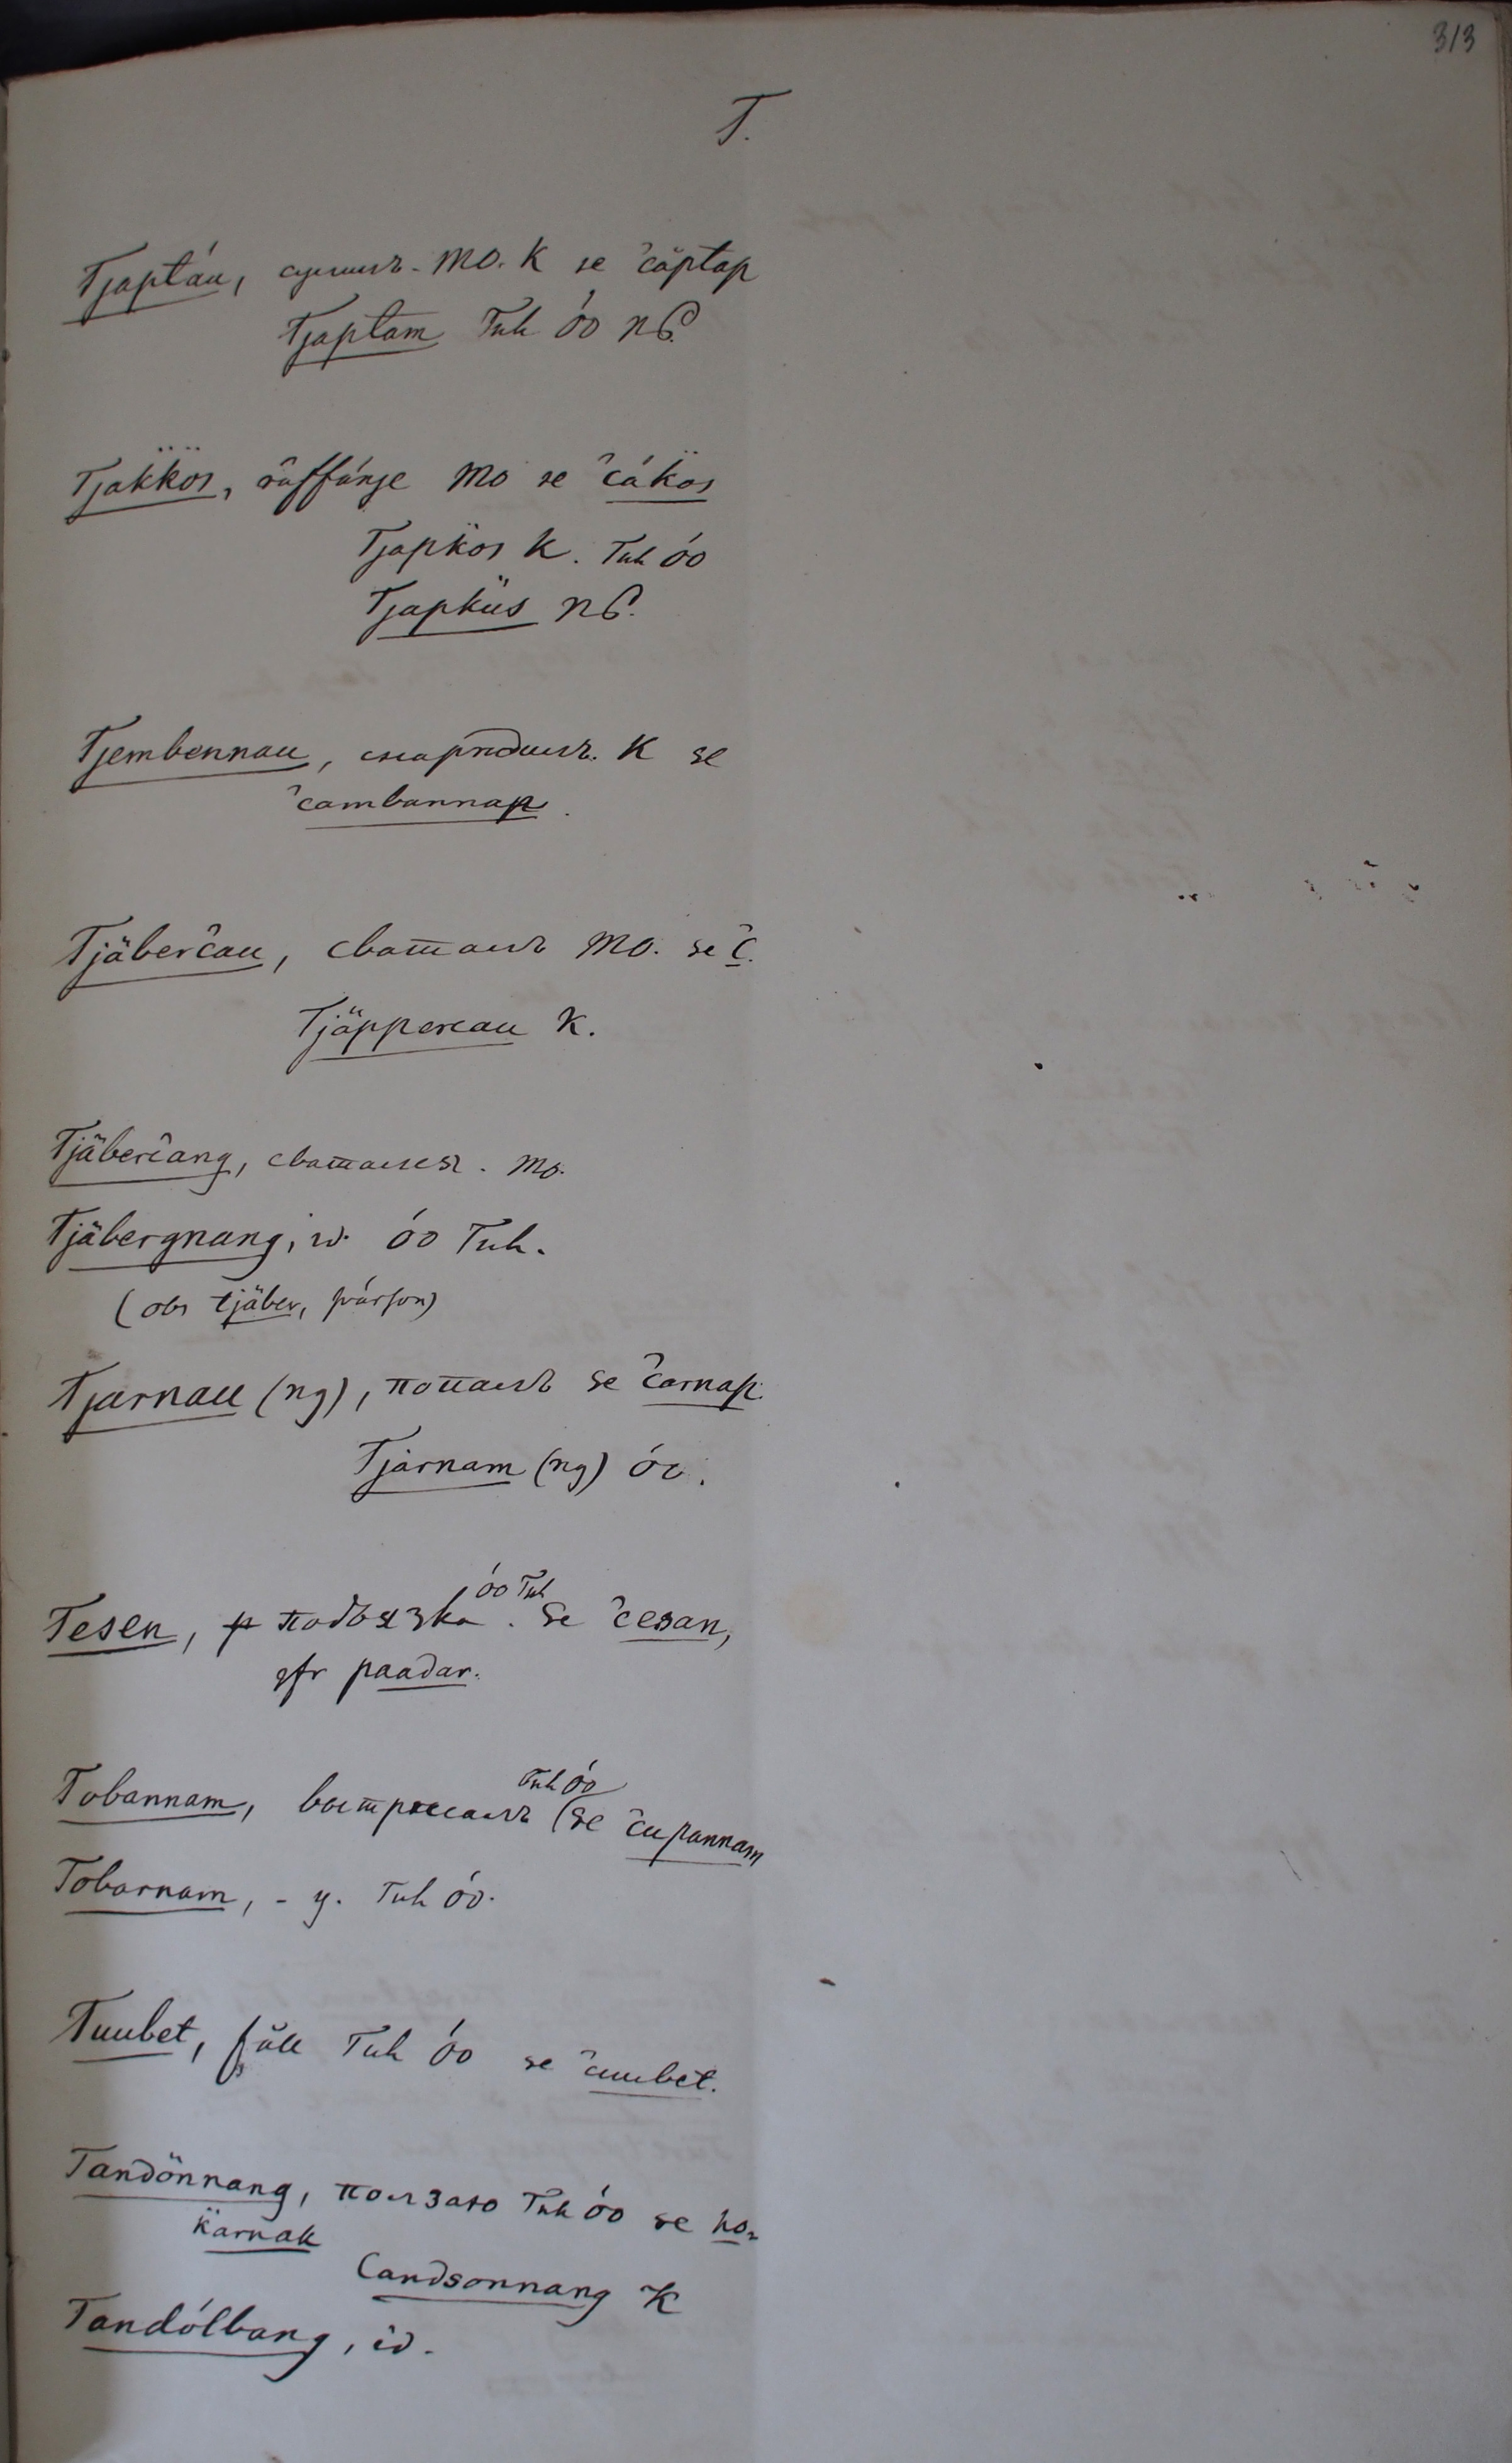 313
T.
Tjaptáu, сушить. MO. K se ĉäptap
Tjaptam Tuh óo NP.
Tjäkkös, räffánge MO se ĉák̈os
Tjapk̈os K. Tuh óo
Tjapk̈us NP.
Tjembennau, снарядить. K se
ĉambannap.
Tjäberĉau, сватать MO. se ĉ.
Tjäppercau K.
Tjäberĉang, свататься. MO.
Tjäbergnang, id. óo Tuh.
(obs tjäber,
Tjarnau (ng), попать se ĉarnap.
Tjarnam (ng) óo.
óo Tuh
Tesen, подвязка. se ĉesan,
jfr paadar.
Tuh óo
Tobannam, вытрясать (se ĉupannam
Tobarnam, - y. Tuh óo.
Tuubet, fäll Tuh óo se ĉuubet.
Tandönnang, ползаю Tuh óo se ho-
k̈arnak
Candsonnang K
Tandólbang, id.